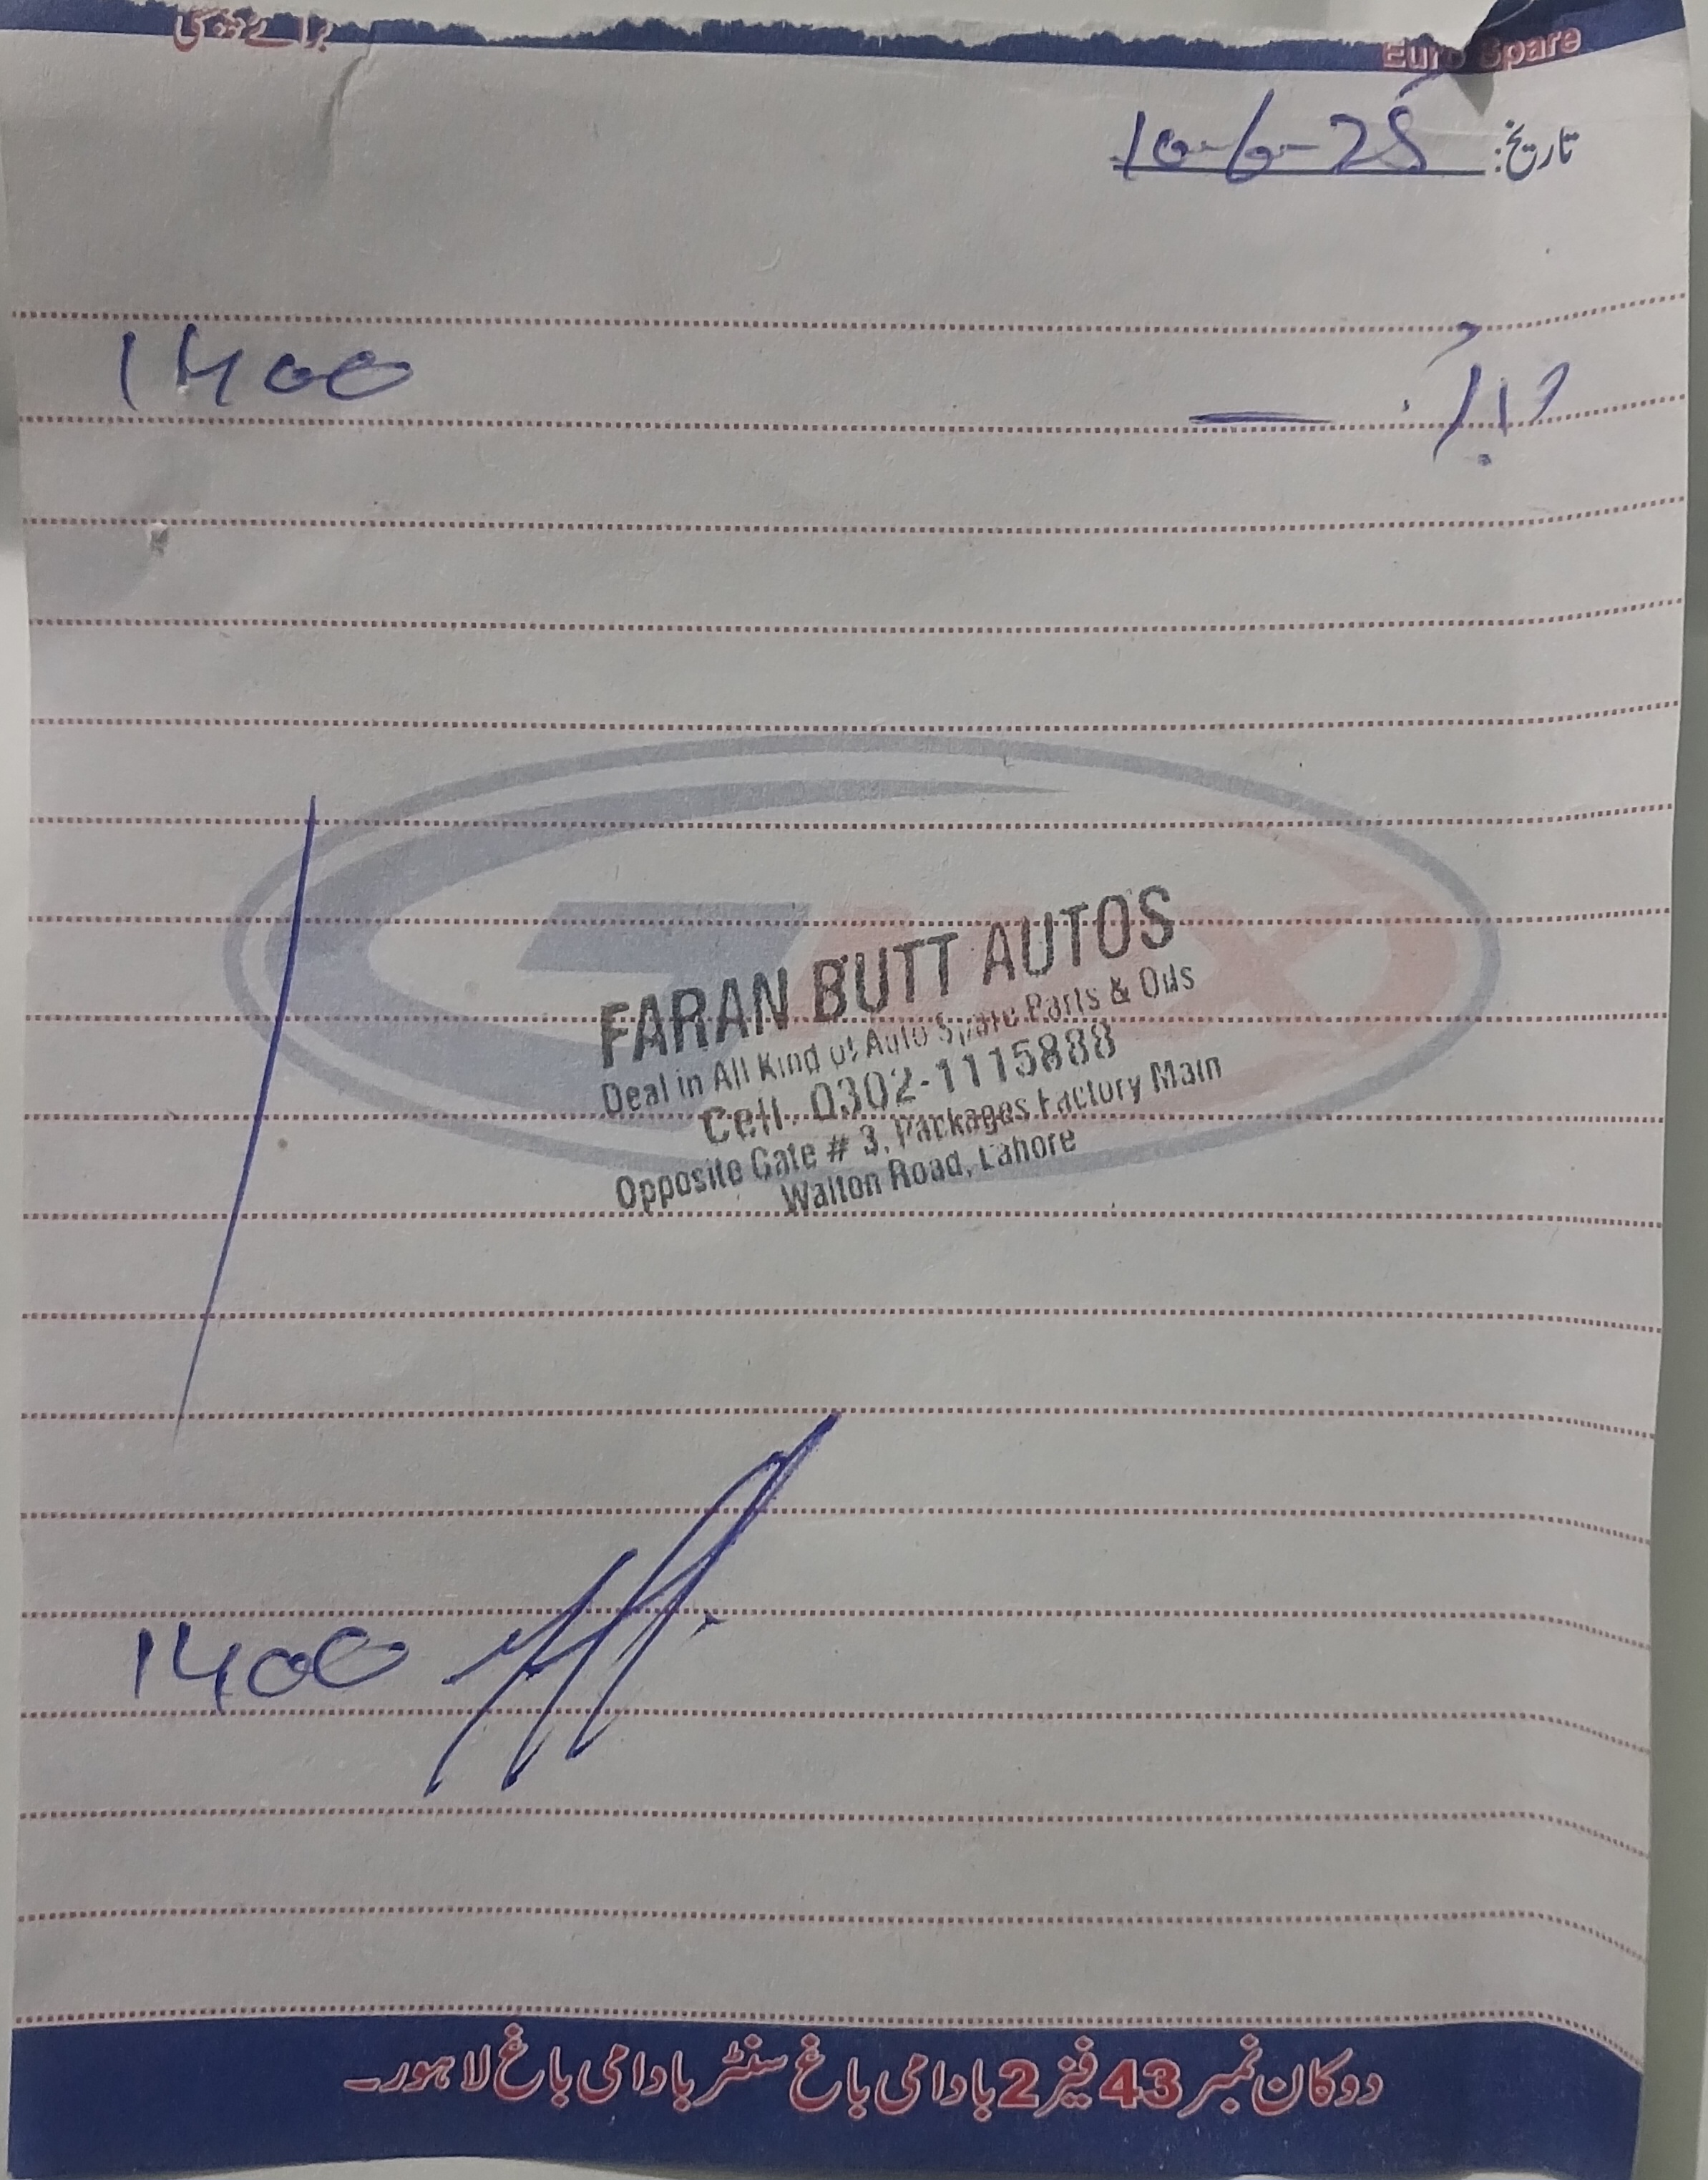 Euro Spare
تاریخ: 10-6-25
1400
FARAN BUTT AUTOS
Deal in All Kind of Auto Spare Parts & Oils
Cell. 0302-1115888
Opposite Gate # 3, Packages Factory Main
Walton Road, Lahore
1400
دوکان نمبر 43 فیز 2 بادامی باغ سنٹر بادامی باغ لاہور۔